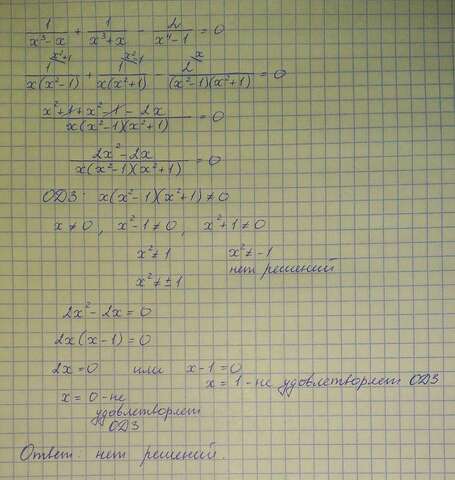 1/(x³-x) + 1/(x³+x) - 2/(x⁴-1) = 0
x²+1 x²-1 x
1/(x(x²-1)) + 1/(x(x²+1)) - 2/((x²-1)(x²+1)) = 0
(x²+1+x²-1-2x)/(x(x²-1)(x²+1)) = 0
(2x²-2x)/(x(x²-1)(x²+1)) = 0
ОДЗ: x(x²-1)(x²+1)≠0
x≠0, x²-1≠0, x²+1≠0
x²≠1 x²≠-1
x²≠±1 нет решений
2x²-2x=0
2x(x-1)=0
2x=0 или x-1=0
x=1-не удовлетворяет ОДЗ
x=0-не
удовлетворяет
ОДЗ
Ответ: нет решений.